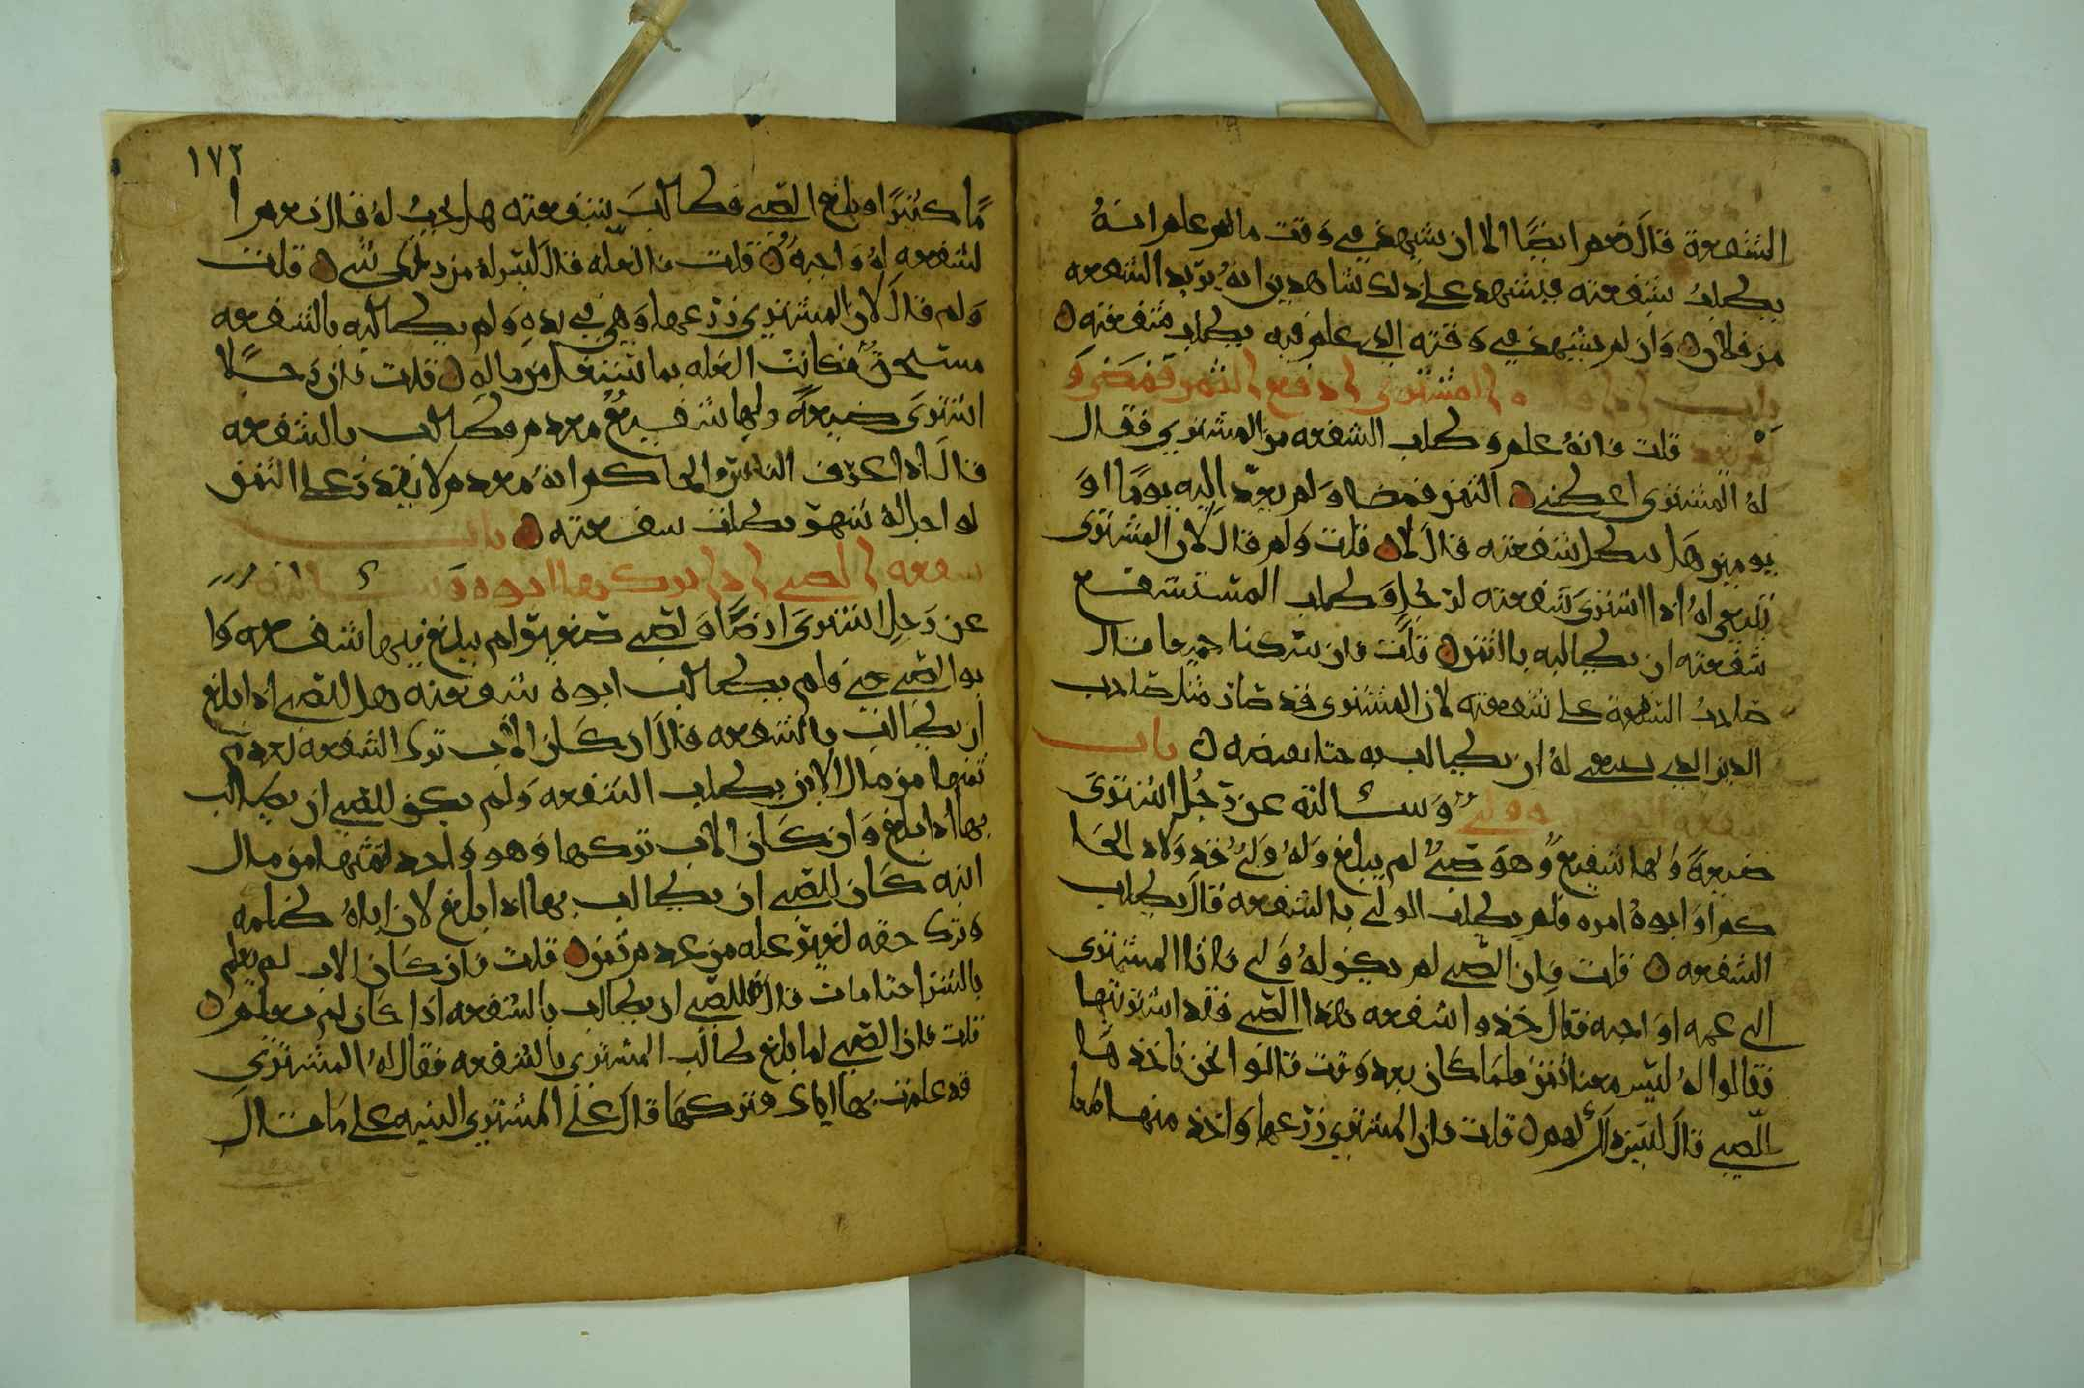 الشفعة قال نعم ايضًا الا ان يشهد في وقت ما هو علم انهُ
يطلبُ شفعته فيشهد على ذلك شاهدين انهُ يريد الشفعه
من فلان ٥ وان لم يشهد في وقته الذي علم فيه بطلت شفعته ٥
باب اذا المشتري ادفع الثمن فمضى و
لم يعد قلت فانهُ علم وطلب الشفعه من المشتري فقال
لهُ المشتري اعطني ٥ الثمن فمضا ولم يعد اليه يومًا او
يومين هل تبطل شفعته قال لا ٥ قلت ولم قال لان المشتري
ينبغي لهُ اذا اشترى شفعته لرجُلٍ وطلب المستشفع
شفعته ان يطالبه بالثمن ٥ قلت فان تركنا جميعا قال
صاحبُ الشفعة على شفعته لان المشتري قد صار مثل صاحب
الدين الذي ينبغي له ان يطالب به حتا يقبضه ٥ باب
شفعة وسالته عن رجُل اشترى
ضيعةً ولها شفيعٌ وهو صبيٌ لم يبلغ ولهُ وليٌ قد ولاه الحا
كم او ابوهُ امره فلم يطلب الولي بالشفعه قال يطلب
الشفعه ٥ قلت فان الصبي لم يكن لهُ ولي فاتا المشتري
الى عمه او اخيه فقال خذوا شفعه هذا الصبي فقد اشتريتها
فقالوا لهُ ليس معنا ثمن فلما كان بعد وقت قالوا نحن ناخذها
للصبي قال ليس ذلك لهم ٥ قلت فان المشتري زرعها واخذ منها طعا
١٧٢
مًا كثيرًا وبلغ الصبي فطالب بشفعته هل تجبُ لهُ قال نعم ا
لشفعه لهُ واجبهٌ ٥ قلت فالغله قال ليس له من ذلك شي ٥ قلت
ولم قال لان المشتري زرعها وهي في يده ولم يطالبه بالشفعه
مستحقٌ فكانت الغله بما شغل من ماله ٥ قلت فان رجلًا
اشترى ضيعةً ولها شفيعٌ معدم فطالب بالشفعه
قال اذا عرف الناس والحاكم انهُ معدم لا يقدر على الثمن
لو اجل لهُ شهر بطلت شفعته ٥ باب
شفعه الصبي اذا تركها ابوه وسالته
عن رجل اشترى ارضًا ولصبي صغير لم يبلغ فيها شفعه وا
بو الصبي حي فلم يطالب ابوه شفعته هل للصبي اذا بلغ
ان يطالب بالشفعه قال ان كان الاب ترك الشفعه لعدم
ثمنها من مال الابن بطلت الشفعه ولم يكن للصبي ان يطالب
بها اذا بلغ وان كان الاب تركها وهو واجد لثمنها من مال
ابنه كان للصبي ان يطالب بها اذا بلغ لان اباهُ ظلمه
وترك حقه لغير عله من عدم ثمن ٥ قلت فان كان الاب لم يعلم
بالشرا حتا مات قال للصبي ان يطالب بالشفعه اذا كان لم يعلم ٥
قلت فان الصبي لما بلغ طالب المشتري بالشفعه فقال لهُ المشتري
قد علمت بها اياك فتركها قال على المشتري البينه على ما قال